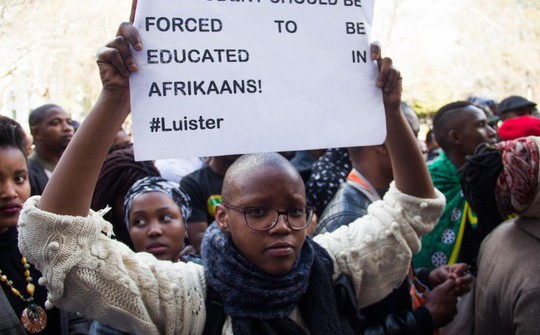 STUDENT SHOULD BE
FORCED TO BE
EDUCATED IN
AFRIKAANS!
#Luister